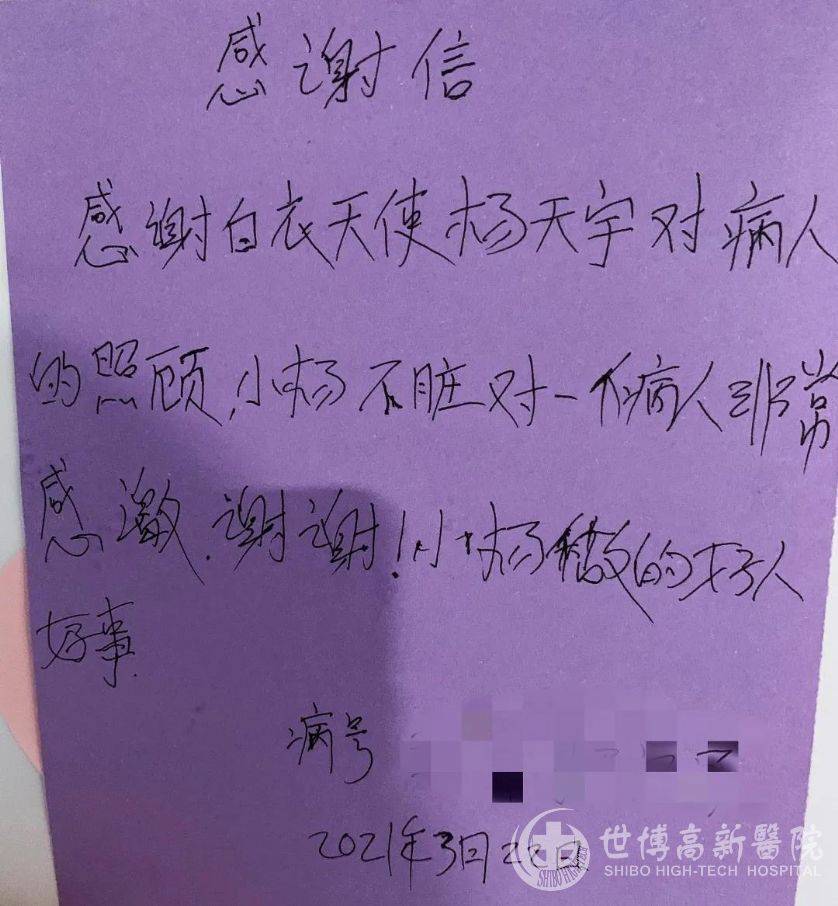 感谢信
感谢白衣天使杨天宇对病人
的照顾,小杨不脏对一个病人非常
感激.谢谢!小杨做的好人
好事.
病号
2021年3月28日
世博高新醫院
SHIBO HIGH-TECH HOSPITAL
SHIBO HIGH-TECH